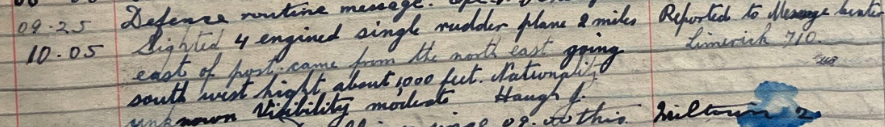 09.25 Defense routine message. Reported to Message Center
10.05 Sighted 4 engined single rudder plane 2 miles Limerick 710.
east of post. came from the north east going
south west hight about 1000 feet. Nationality
unknown Visibility moderate Haugh J.
this Miltown 2